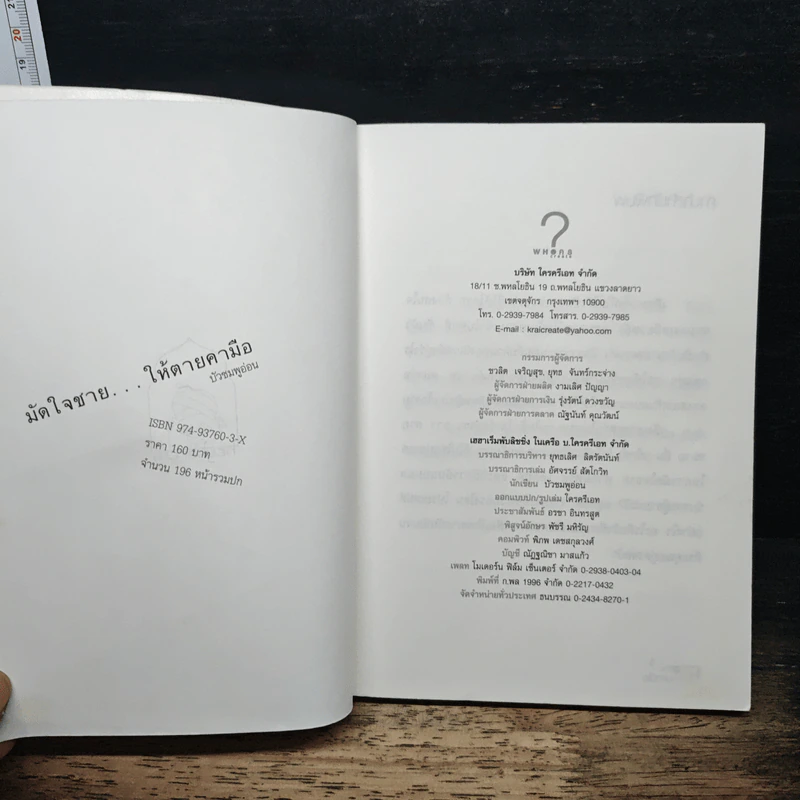 21
20
19
มัดใจชาย...ให้ตายคามือ
บัวชมพูอ่อน
ISBN 974-93760-3-X
ราคา 160 บาท
จำนวน 196 หน้ารวมปก
?
WHO
บริษัท ใครครีเอท จำกัด
18/11 ซ.พหลโยธิน 19 ถ.พหลโยธิน แขวงลาดยาว
เขตจตุจักร กรุงเทพฯ 10900
โทร. 0-2939-7984 โทรสาร. 0-2939-7985
E-mail : kraicreate@yahoo.com
กรรมการผู้จัดการ
ชวลิต เจริญสุข, ยุทธ จันทร์กระจ่าง
ผู้จัดการฝ่ายผลิต งามเลิศ ปัญญา
ผู้จัดการฝ่ายการเงิน รุ่งรัตน์ ดวงขวัญ
ผู้จัดการฝ่ายการตลาด ณัฐนันท์ คุณวัฒน์
เฮฮาเร็มพับลิชชิ่ง ในเครือ บ.ใครครีเอท จำกัด
บรรณาธิการบริหาร ยุทธเลิศ ลิตรัตนันท์
บรรณาธิการเล่ม อัศจรรย์ สัตโกวิท
นักเขียน บัวชมพูอ่อน
ออกแบบปก/รูปเล่ม ใครครีเอท
ประชาสัมพันธ์ อรชา อินทรสูต
พิสูจน์อักษร พัชรี มหิรัญ
คอมพิวท์ พิภพ เดชสกุลวงศ์
บัญชี ณัฏฐณิชา มาสแก้ว
เพลท โมเดอร์น ฟิล์ม เซ็นเตอร์ จำกัด 0-2938-0403-04
พิมพ์ที่ ก.พล 1996 จำกัด 0-2217-0432
จัดจำหน่ายทั่วประเทศ ธนบรรณ 0-2434-8270-1